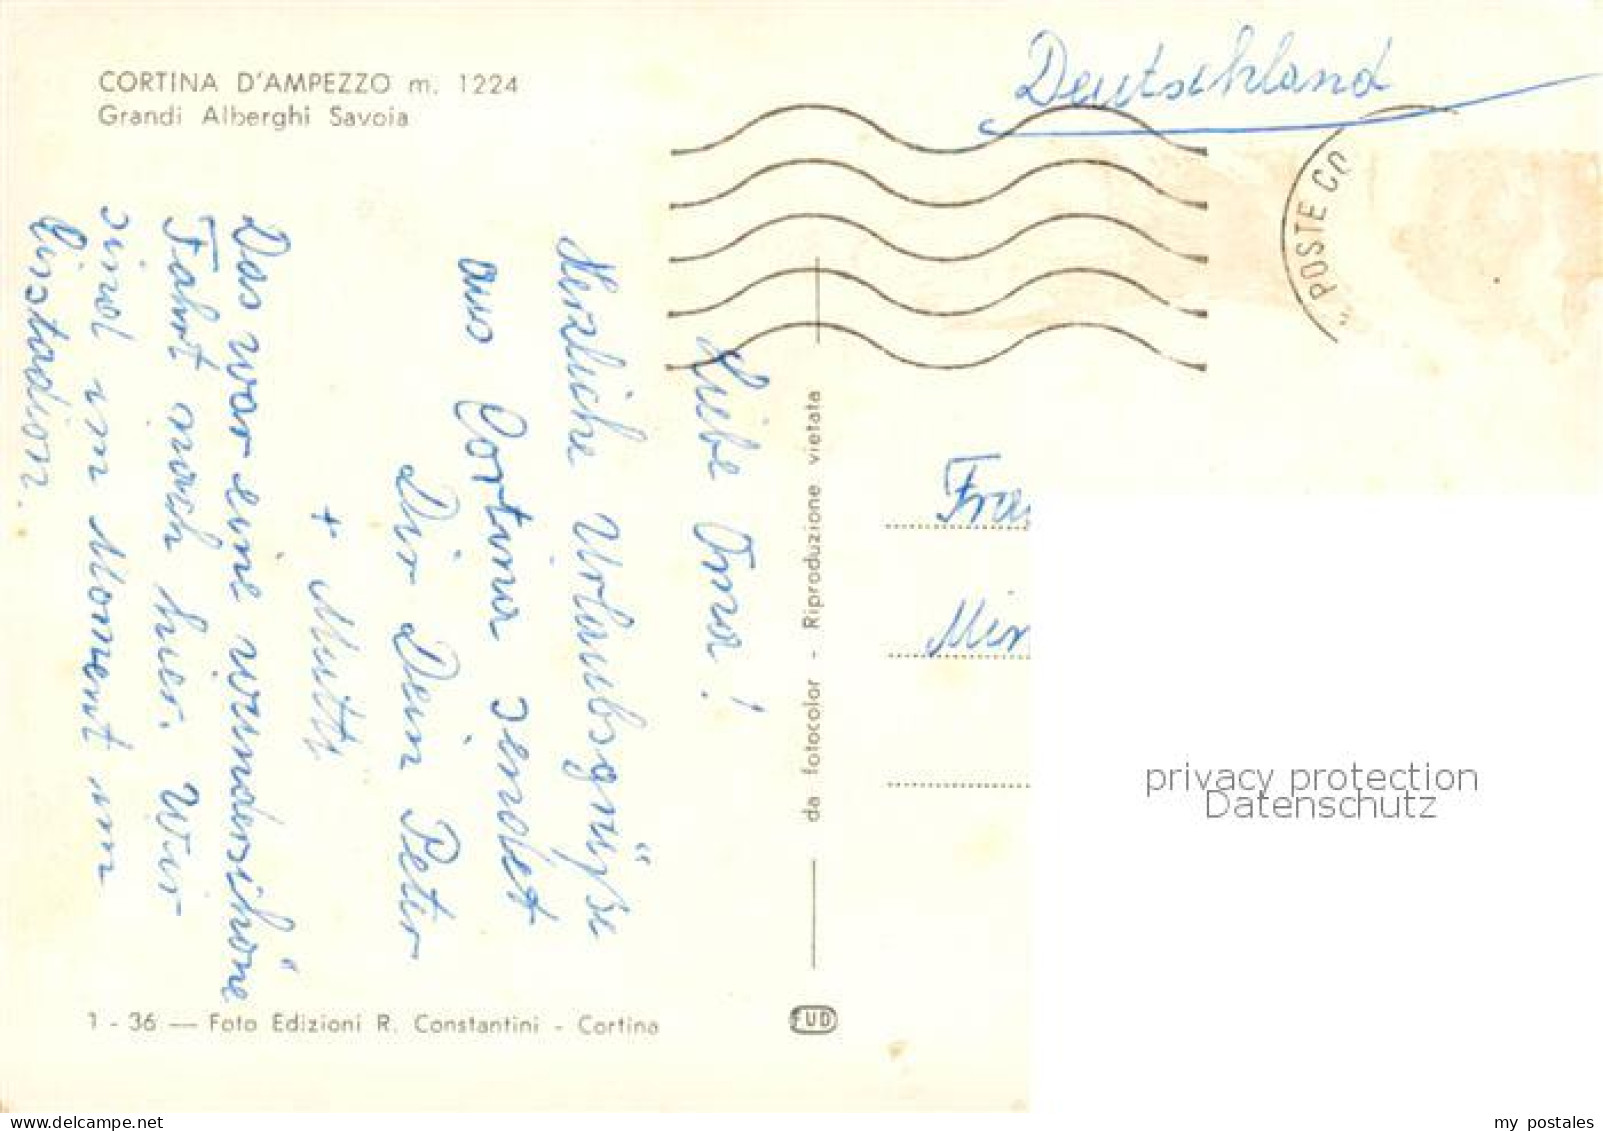 CORTINA D'AMPEZZO m. 1224
Grandi Alberghi Savoia
Deutschland
POSTE CO
Liebe Oma!
Herzliche Urlaubsgrüße
aus Cortina sendet
Dir Dein Peter
+ Mutti
Das war eine wunderschöne
Fahrt nach hier. Wir
sind im Moment im
Eisstadion.
da fotocolor - Riproduzione vietata
Frau
Min
privacy protection
Datenschutz
1 - 36 — Foto Edizioni R. Constantini - Cortina
FUD
my postales